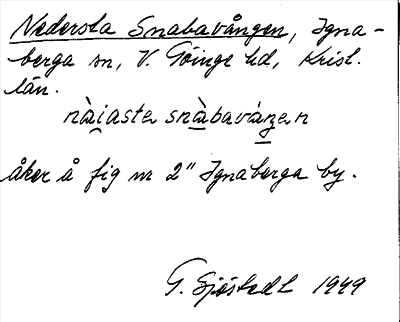 Nedersta Snabavången, Igna-
berga sn, V. Göinge hd, Krist.
län.
nàiaste snàbaváŋen
åker å fig nr 2" Ignaberga by.
G. Sjöstedt 1949